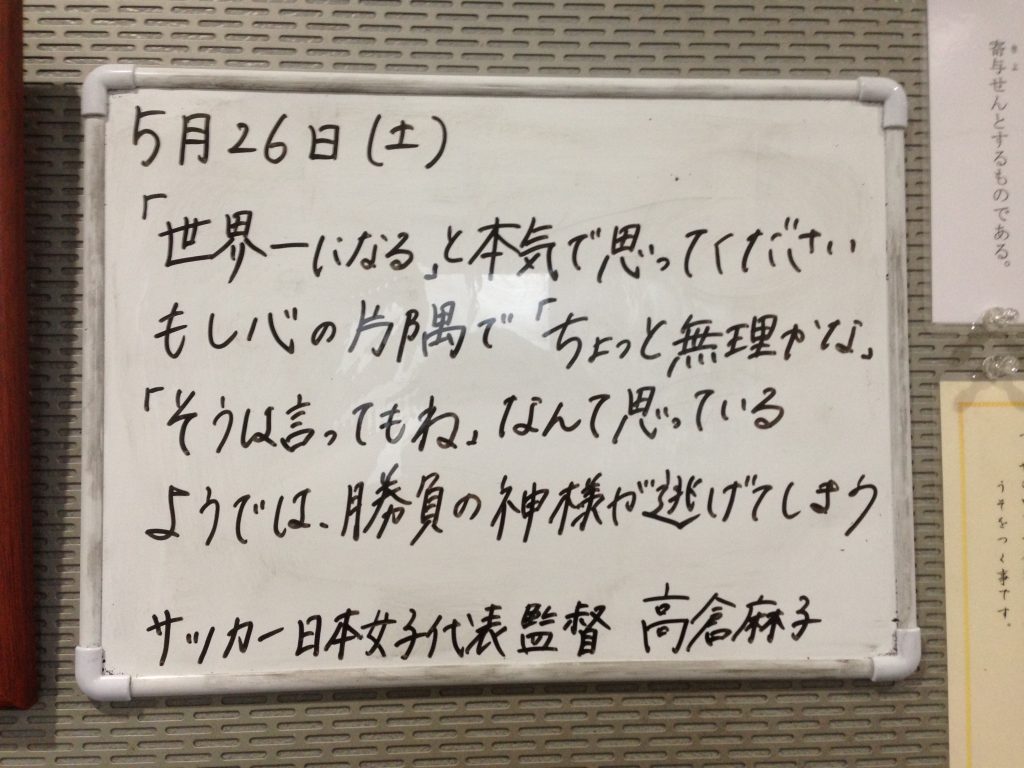 5月26日(土)
「世界一になる」と本気で思ってください
もし心の片隅で「ちょっと無理かな」
「そうは言ってもね」なんて思っている
ようでは、勝負の神様が逃げてしまう
サッカー日本女子代表監督 高倉麻子
寄与せんとするものである。
きよ
うそをつく事です。